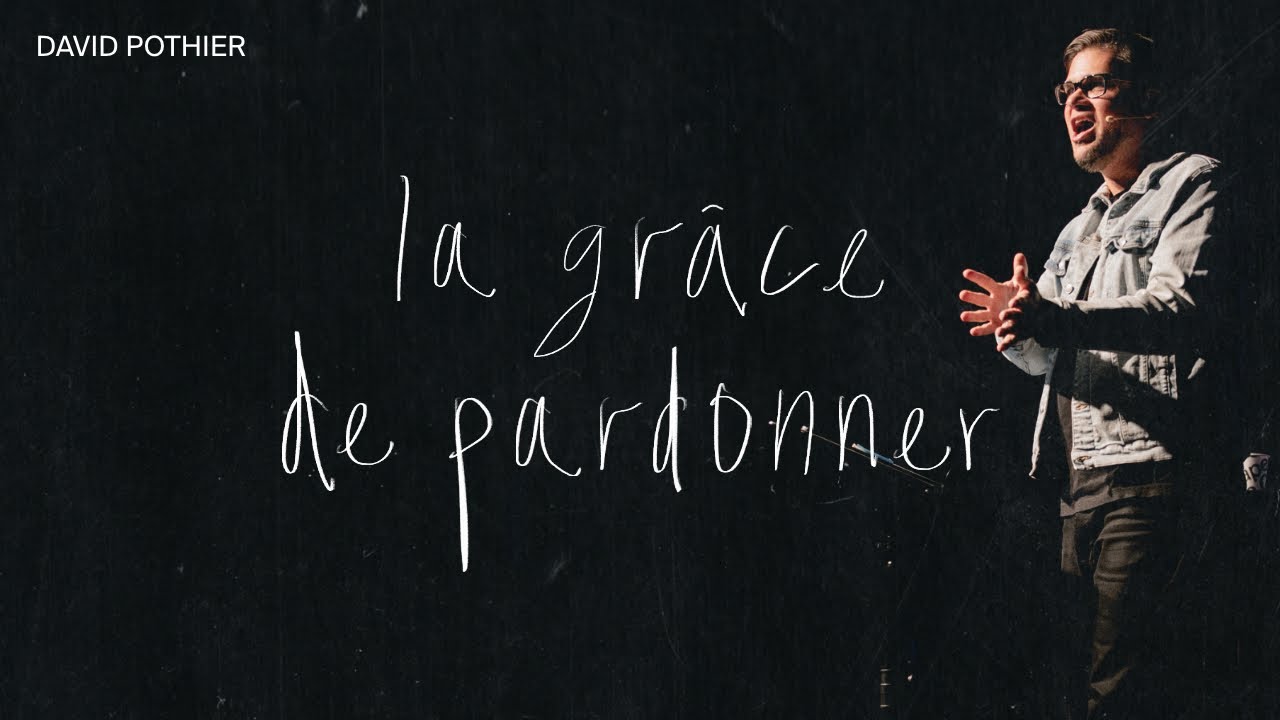 DAVID POTHIER
la grâce
de pardonner